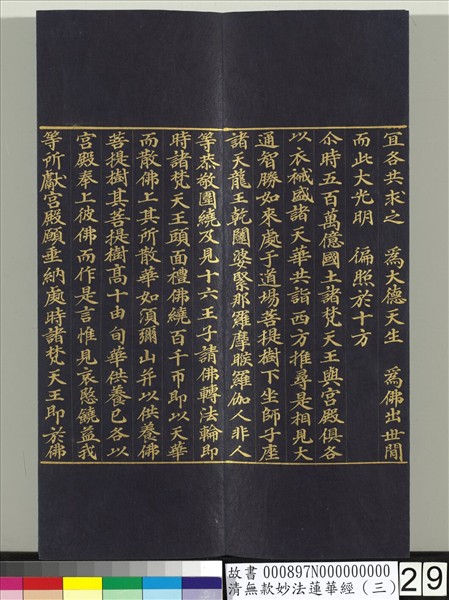 宜各共求之　為大德天生　為佛出世間
而此大光明　徧照於十方
尒時五百萬億國土諸梵天王與宮殿俱各
以衣祴盛諸天華共詣西方推尋是相見大
通智勝如來處于道場菩提樹下坐師子座
諸天龍王乾闥婆緊那羅摩睺羅伽人非人
等恭敬圍繞及見十六王子請佛轉法輪即
時諸梵天王頭面禮佛繞百千帀即以天華
而散佛上其所散華如須彌山并以供養佛
菩提樹其菩提樹高十由旬華供養已各以
宮殿奉上彼佛而作是言惟見哀愍饒益我
等所獻宮殿願垂納處時諸梵天王即於佛
故書 000897N000000000
清無款妙法蓮華經（三）
29